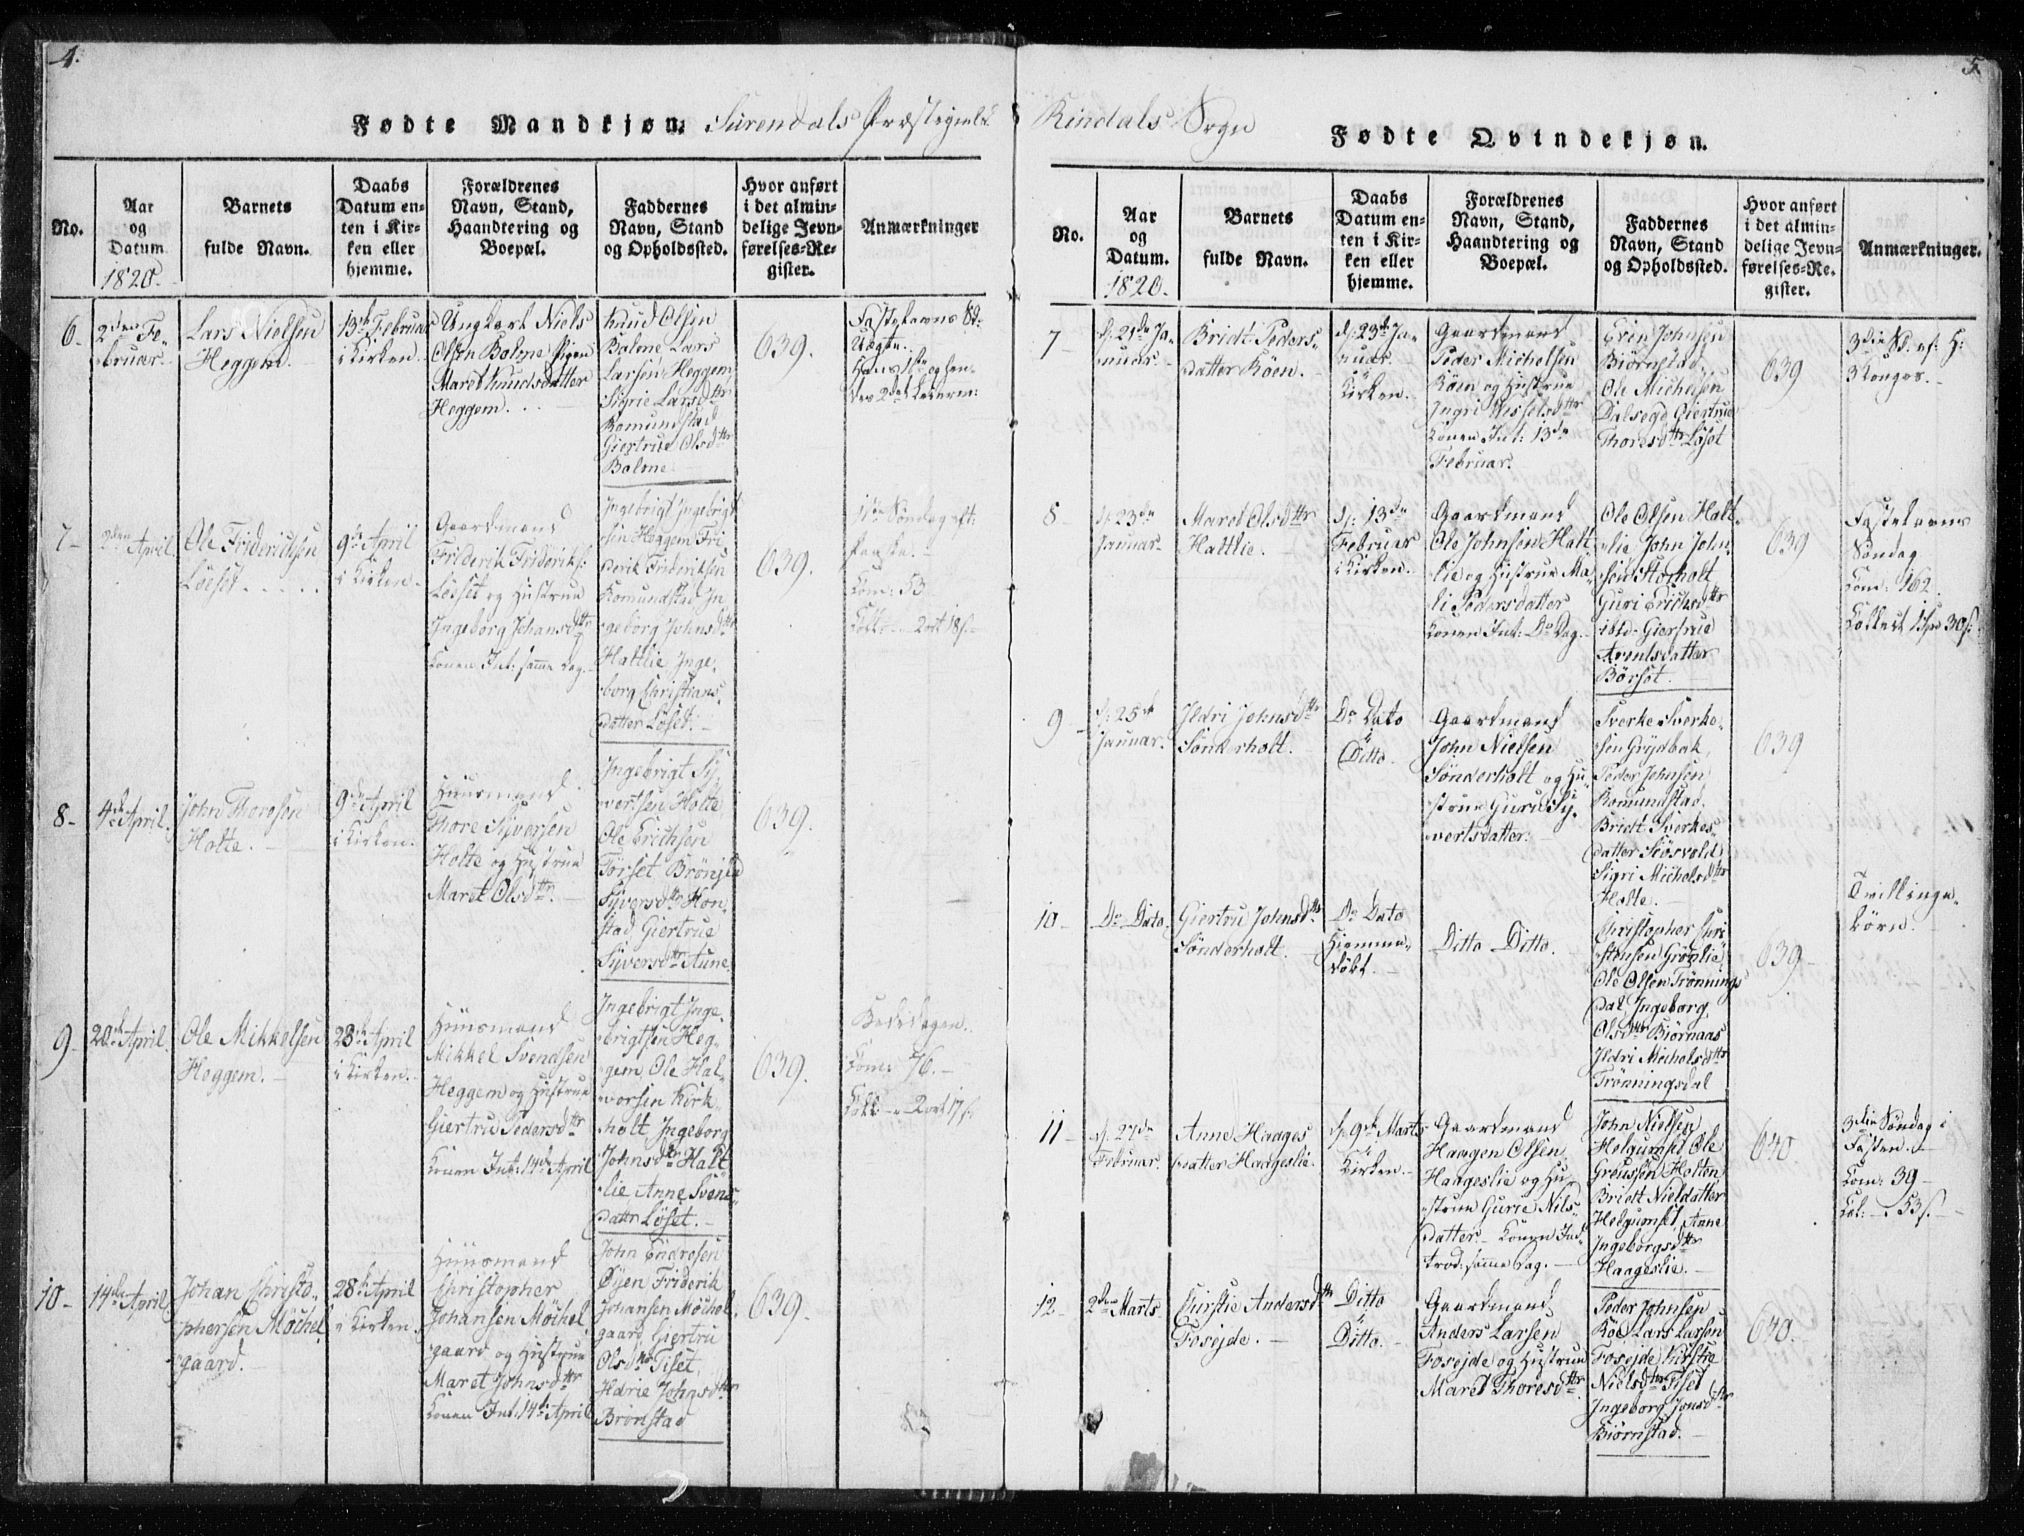 4.
Fødte Mandkjøn. Surendals Præstegield
No.
Aar
og
Datum
1820.
Barnets
fulde Navn.
Daabs
Datum en-
ten i Kir-
ken eller
hjemme.
Forældrenes
Navn, Stand,
Haandtering og
Boepæl.
Faddernes
Navn, Stand
og Opholdssted.
Hvor anført
i det almin-
delige Jevn-
førelses-Re-
gister.
Anmærkninger
6.
2den Fe-
bruar.
Lars Nielsen
Heggem.
13de Februar
i Kirken.
Ungkarl Niels
Olsen Bolme Pigen
Maret Knudsdatter
Heggem.
Knud Olsen
Bolme Lars
Larsen Heggem
Sigrie Larsdttr
Romundstad
Giertrue Olsdttr
Bolme
639.
Fastelavns Sd.
Uægte.
Hans 1ste og hen-
des 2det
7-
2den April.
Ole Friderichsen
Löeset
9de April
i Kirken.
Gaardmand
Friderik Frideriks:
Löeset og Hustrue
Ingeborg Johansdttr
Konen Int: samme Dag.
Ingebrigt Ingebrigt
sen Heggem Fri
derik Frideriksen
Romundstad In
geborg Johnsdttr
Hattlie Inge-
borg Christians
datter Löset.
639.
1ste Søndag eft:
Paaske.
Com: 53
2 ort 18 s.
8-
4de April.
John Thoresen
Holte.
9de April
i Kirken.
Huusmand
Thore Siversen
Holte og Hustrue
Maret Olsdttr.
Ingebrigt Sy-
vertsen Holte
Ole Erichsen
Törset Brönjld
Syversdttr Hon
stad Giertrue
Syversdttr Aune
639.
9
20de April.
Ole Mikkelsen
Heggem.
28de April
i Kirken.
Huusmand
Mikkel Svendsen
Heggem og Hustrue
Giertru Pedersdttr
Konen Int: 14de April
Ingebrigt Inge-
brigtsen Heg-
gem, Ole Hal-
vorsen Kirk-
holt Ingeborg
Johnsdttr Hatt
lie Anne Svens
dattr Löset.
639.
Bededagen.
Com: 76.
2 ort 17 s.
10-
14de April
Johan Christo-
phersen Möchel
gaard.
28de April
i Kirken.
Huusmand
Christopher
Johansen Möchel
gaard og Hustrue
Maret Johnsdttr
Konen Int: 14de April
John Endresen
Øyen Friderik
Johansen Möchel
gaard Giertru
Olsdttr Tiset,
Ildrie Johnsdttr
Brönstad
639.
5.
Rindals Sogn
Fødte Qvindekjøn.
No.
Aar
og
Datum.
1820.
Barnets
fulde Navn.
Daabs
Datum en-
ten i Kir-
ken eller
hjemme.
Forældrenes
Navn, Stand,
Haandtering og
Boepæl.
Faddernes
Navn, Stand
og Opholdssted.
Hvor anført
i det almin-
delige Jevn-
førelses-Re-
gister.
Anmærkninger.
7
d: 21de Ja-
nuar.
Bridt Peders-
datter Köen.
d: 23de Ja-
nuar
Kirken.
Gaardmand
Peder Michelsen
Köen og Hustrue
Ingri Wesselsdttr
Konen Int: 13de
Februar.
Even Johnsen
Biörnstad
Ole Michelsen
Dalsegd Giertrue
Thoresdttr Löset
639
3die Sd. ef: H:
3 Konger.
8
d: 23de
Januar
Maret Olsdttr
Hattlie.
d: 13de
Februar
i Kirken.
Gaardmand
Ole Johnsen Hatt
lie og Hustrue Ma-
li Pedersdatter
Konen Int: Do Dag.
Ole Olsen Hatt-
lie John John-
sen Storholt
Guri Erichsdttr
ibid. Giertrue
Arentsdatter
Börset.
639
Fastelavns
Søndag
Com: 162.
Collect 1 Spd 30 s:
9
d: 25de
Januar.
Ildri Johnsdttr
Sönderholt.
Do Dato
Ditto.
Gaardmand
John Nielsen
Sönderholt og Hu-
strue Guru Sy-
vertsdatter.
Sverke Sverke-
sen Grÿdbak,
Peder Johnsen
Romundstad.
Bridt Sverkes-
datter Siösvold
Sigri Michelsdttr
Holte.
639
10
Do Dato.
Giertru Johnsdttr
Sönderholt.
Do Dato
Hiemme-
döbt.
Ditto Ditto.
Christopher Chri
stensen Grönlie
Ole Olsen Trönnings
dal, Ingeborg
Olsdttr Biörnaas
Ildri Michelsdttr
Trönningsdal
639
Tvillinge-
börn.
11
d: 27de
Februar.
Anne Haages
datter Haageslie.
d: 9de Marts
Kirken.
Gaardmand
Haagen Olsen
Haageslie og Hu-
strue Gurie Nils-
datter. Konen Ind-
trod: samme Dag.
John Nielsen
Helgumset Ole
Greussen Holten
Bridt Nielsdatter
Helgumset, Anne
Ingeborgsdttr
Haageslie.
640.
3die Søndag i
Fasten.
Com: 39
Col: 53 s.
12
2den Marts
Kirstie Andersdttr
Foseide.
Ditto
Ditto.
Gaardmand
Anders Larsen
Foseide og Hustrue
Maret Thoresdttr.
Peder Johnsen
Köe Lars Larsen
Foseide, Kirstie
Nielsdttr Tiset
Ingeborg Jonsdttr
Biörnstad.
640.